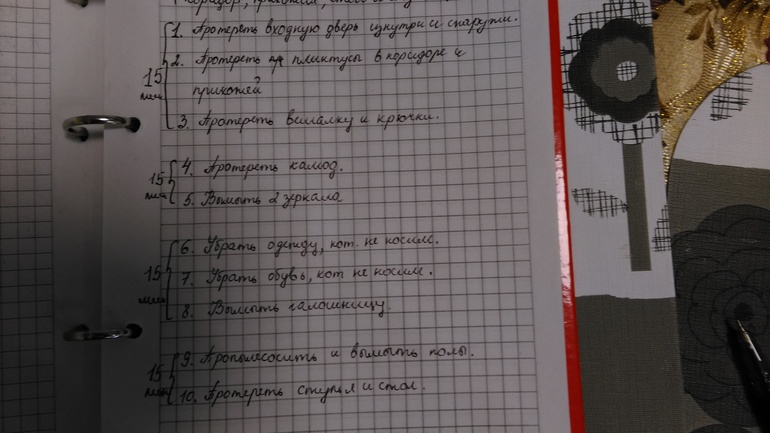 коридор, прихожая,
1. Протереть входную дверь изнутри и снаружи.
2. Протереть плинтусы в коридоре и
15 мин
прихожей
3. Протереть вешалку и крючки.
4. Протереть комод.
15 мин
5. Вымыть 2 зеркала
6. Убрать одежду, кот. не носим.
15 мин
7. Убрать обувь, кот не носим.
8. Вымыть галошницу.
9. Пропылесосить и вымыть полы.
15 мин
10. Протереть стулья и стол.